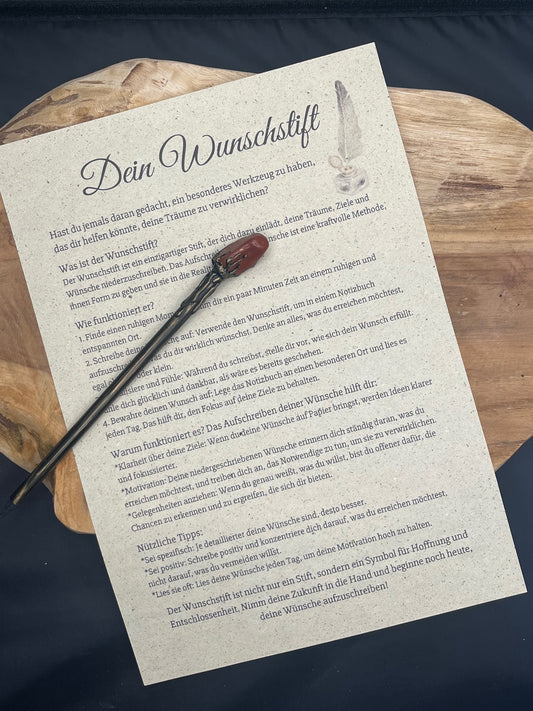 Dein Wunschstift
Hast du jemals daran gedacht, ein besonderes Werkzeug zu haben,
das dir helfen könnte, deine Träume zu verwirklichen?
Was ist der Wunschstift?
Der Wunschstift ist ein einzigartiger Stift, der dich dazu einlädt, deine Träume, Ziele und
Wünsche niederzuschreiben. Das Aufschr Wünsche ist eine kraftvolle Methode,
ihnen Form zu geben und sie in die Realit
Wie funktioniert er?
1. Finde einen ruhigen Mom dir ein paar Minuten Zeit an einem ruhigen und
entspannten Ort.
2. Schreibe dein auf: Verwende den Wunschstift, um in einem Notizbuch
aufzuschrei as du dir wirklich wünschst. Denke an alles, was du erreichen möchtest,
egal oder klein.
siere und Fühle: Während du schreibst, stelle dir vor, wie sich dein Wunsch erfüllt.
hle dich glücklich und dankbar, als wäre es bereits geschehen.
4. Bewahre deinen Wunsch auf: Lege das Notizbuch an einen besonderen Ort und lies es
jeden Tag. Das hilft dir, den Fokus auf deine Ziele zu behalten.
Warum funktioniert es? Das Aufschreiben deiner Wünsche hilft dir:
*Klarheit über deine Ziele: Wenn du deine Wünsche auf Papier bringst, werden Ideen klarer
und fokussierter.
*Motivation: Deine niedergeschriebenen Wünsche erinnern dich ständig daran, was du
erreichen möchtest, und treiben dich an, das Notwendige zu tun, um sie zu verwirklichen.
*Gelegenheiten anziehen: Wenn du genau weißt, was du willst, bist du offener dafür, die
Chancen zu erkennen und zu ergreifen, die sich dir bieten.
Nützliche Tipps:
*Sei spezifisch: Je detaillierter deine Wünsche sind, desto besser.
*Sei positiv: Schreibe positiv und konzentriere dich darauf, was du erreichen möchtest,
nicht darauf, was du vermeiden willst.
*Lies sie oft: Lies deine Wünsche jeden Tag, um deine Motivation hoch zu halten.
Der Wunschstift ist nicht nur ein Stift, sondern ein Symbol für Hoffnung und
Entschlossenheit. Nimm deine Zukunft in die Hand und beginne noch heute,
deine Wünsche aufzuschreiben!